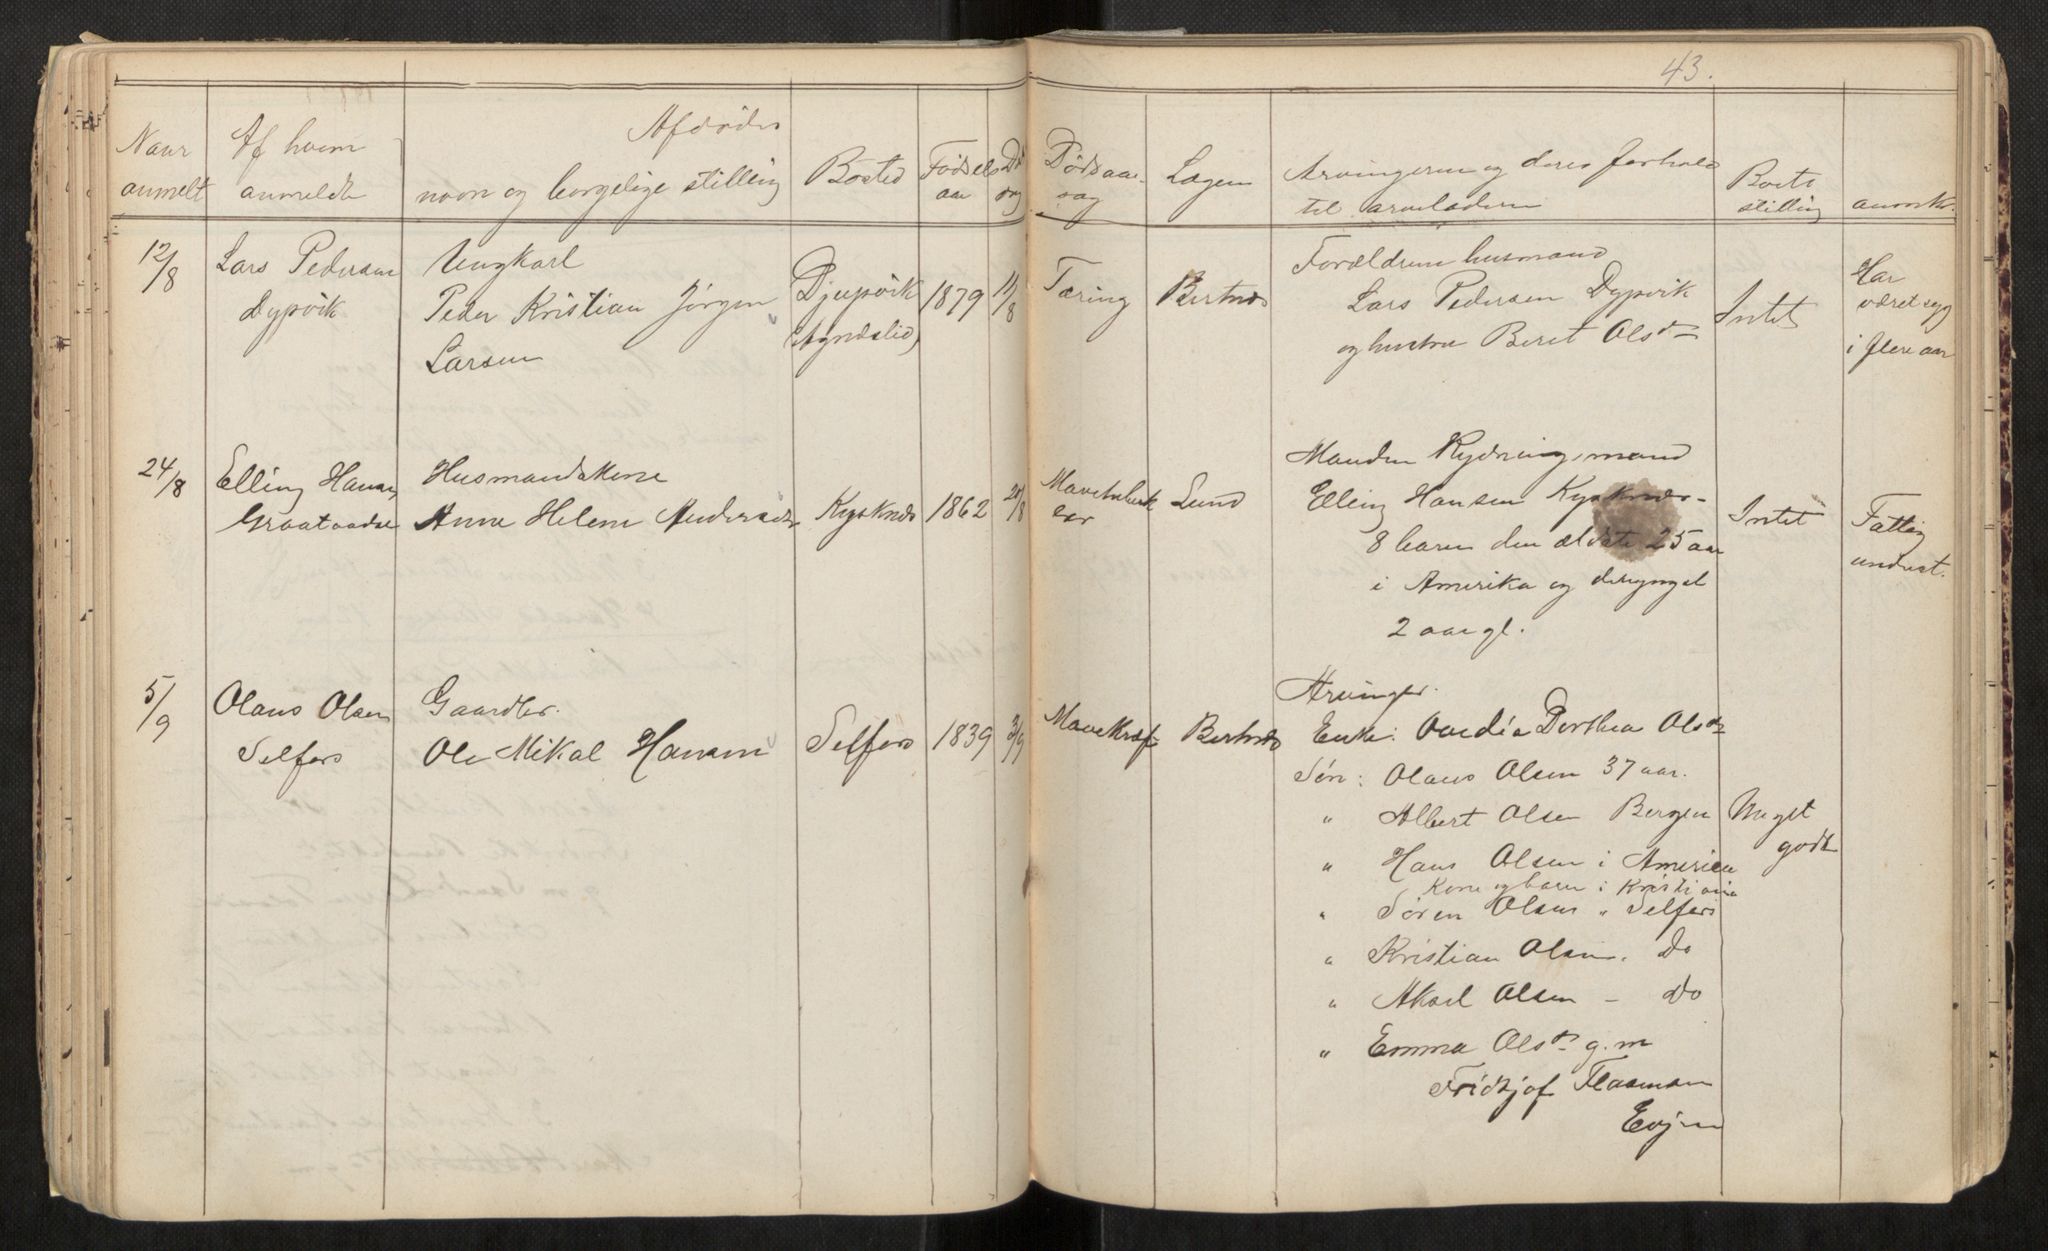 43.
Naar
anmelt
Af hvem
anmeldt
Afdødes
navn og borgelige stilling
Bosted
Fødsels
aar
Død
dag
Dødsaar-
sag
Lægen
Arvingerne og deres forhold
til arveladeren
Boets
stilling
anmrk.
12/8
Lars Pedersen
Dypvik
Ungkarl
Peder Kristian Jørgen
Larsen
Djupvik
1879
11/8
Tæring
Bertnæs
Forældrene husmand
Lars Pedersen Dypvik
og hustru Beret Olsdt
Intet
Har
været syg
i flere aar
24/8
Elling Hansen
Graataadal
Husmandskone
Anne Helene Andersdt
Kysknæs
1862
20/8
Lund
Manden Rydningsmand
Elling Hansen Kysknæs-
8 barn den ældste 25 aar
i Amerika og den yngst
2 aar gl.
Intet
Fattig
underst.
5/9
Olaus Olsen
Selfors
Gaardbr.
Ole Mikal Hansen
Selfors
1839
3/9
Mavekræft
Bertnæs
Arvinger.
Enke: Dorthea Olsdt
Søn: Olaus Olsen 37 aar.
" Albert Olsen Bergen
" Hans Olsen i Amerika
Kone og barn i Kristiania
" Søren Olsen " Selfors
" Kristian Olsen. Do
" Aksel Olsen - Do
" Emma Olsdt g.m
Fridtjof
Evjen
Meget
godt